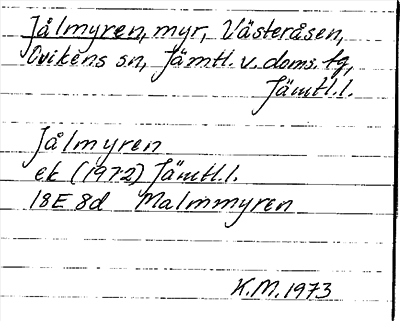 Jålmyren, myr, Västeråsen,
Ovikens sn, Jämtl. v. doms. tg,
Jämtl. l.
Jålmyren
ek (1972) Jämtl. l.
18E 8d Malmmyren
K.M. 1973